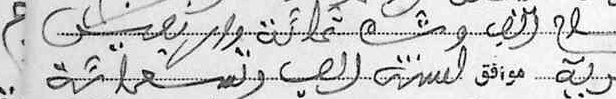 عام الف وثلاثمائة واربعين
موافق لسنة الف وتسعمائة